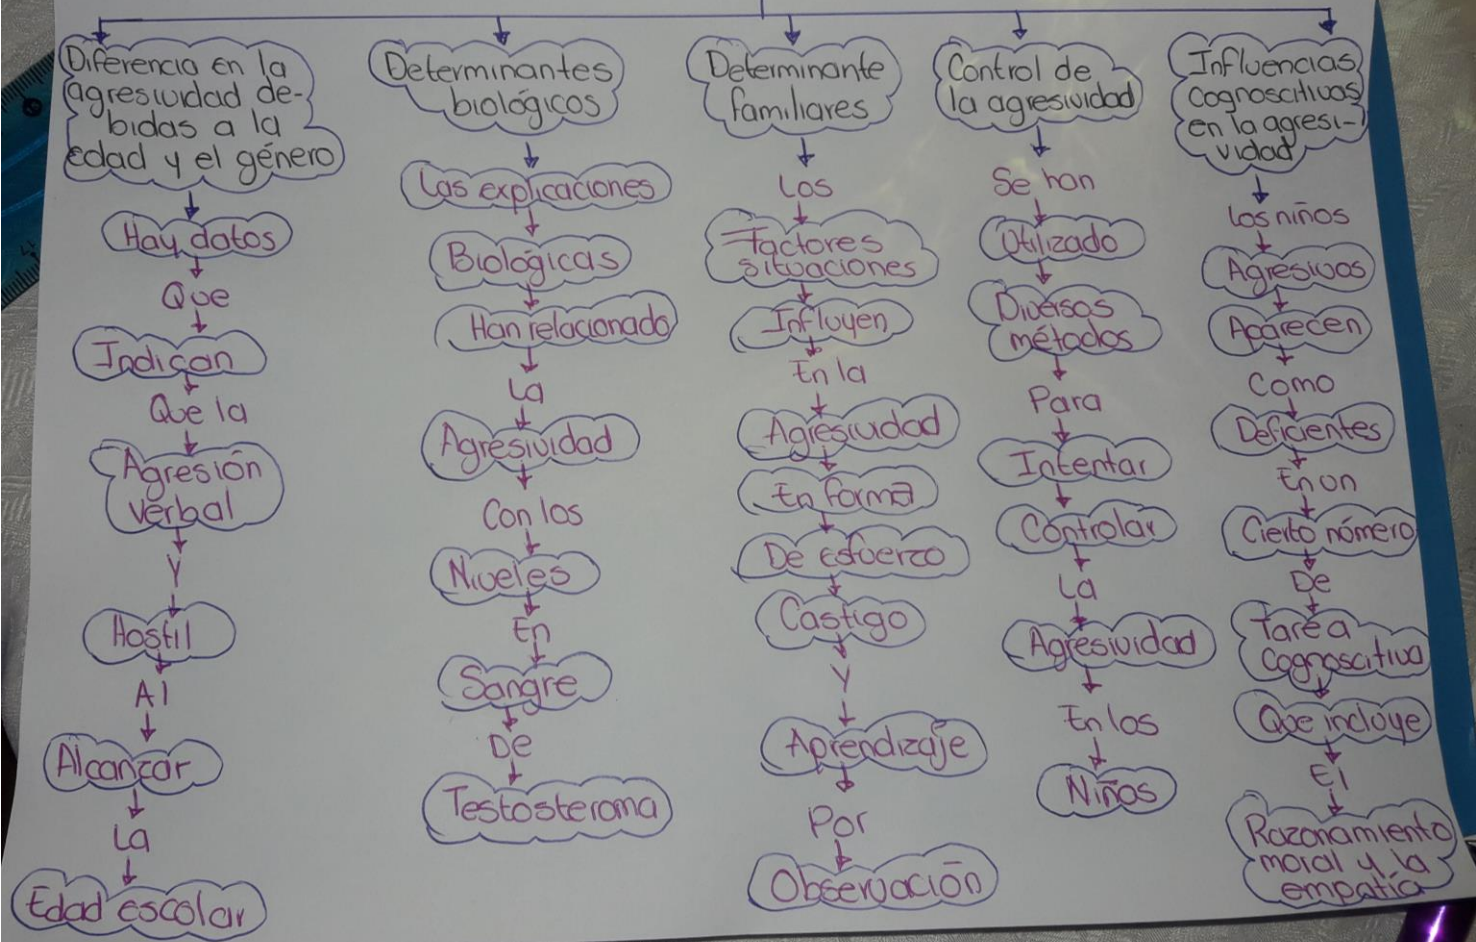 Diferencia en la
agresividad de-
bidas a la
edad y el género
Hay datos
Que
Indican
Que la
Agresión
verbal
Y
Hostil
Al
Alcanzar
La
Edad escolar
Determinantes
biológicos
Las explicaciones
Biológicas
Han relacionado
La
Agresividad
Con los
Niveles
En
Sangre
De
Testosteroma
Determinante
familiares
Los
Factores
situaciones
Influyen
En la
Agresividad
En forma
De esfuerzo
Castigo
Y
Aprendizaje
Por
Observación
Control de
la agresividad
Se han
Utilizado
Diversos
métodos
Para
Intentar
Controlar
La
Agresividad
En los
Niños
Influencias
Cognoscitivas
en la agresi-
vidad
Los niños
Agresivos
Aparecen
Como
Deficientes
En un
Cierto número
De
Tarea
Cognoscitiva
Que incluye
El
Razonamiento
moral y la
empatía